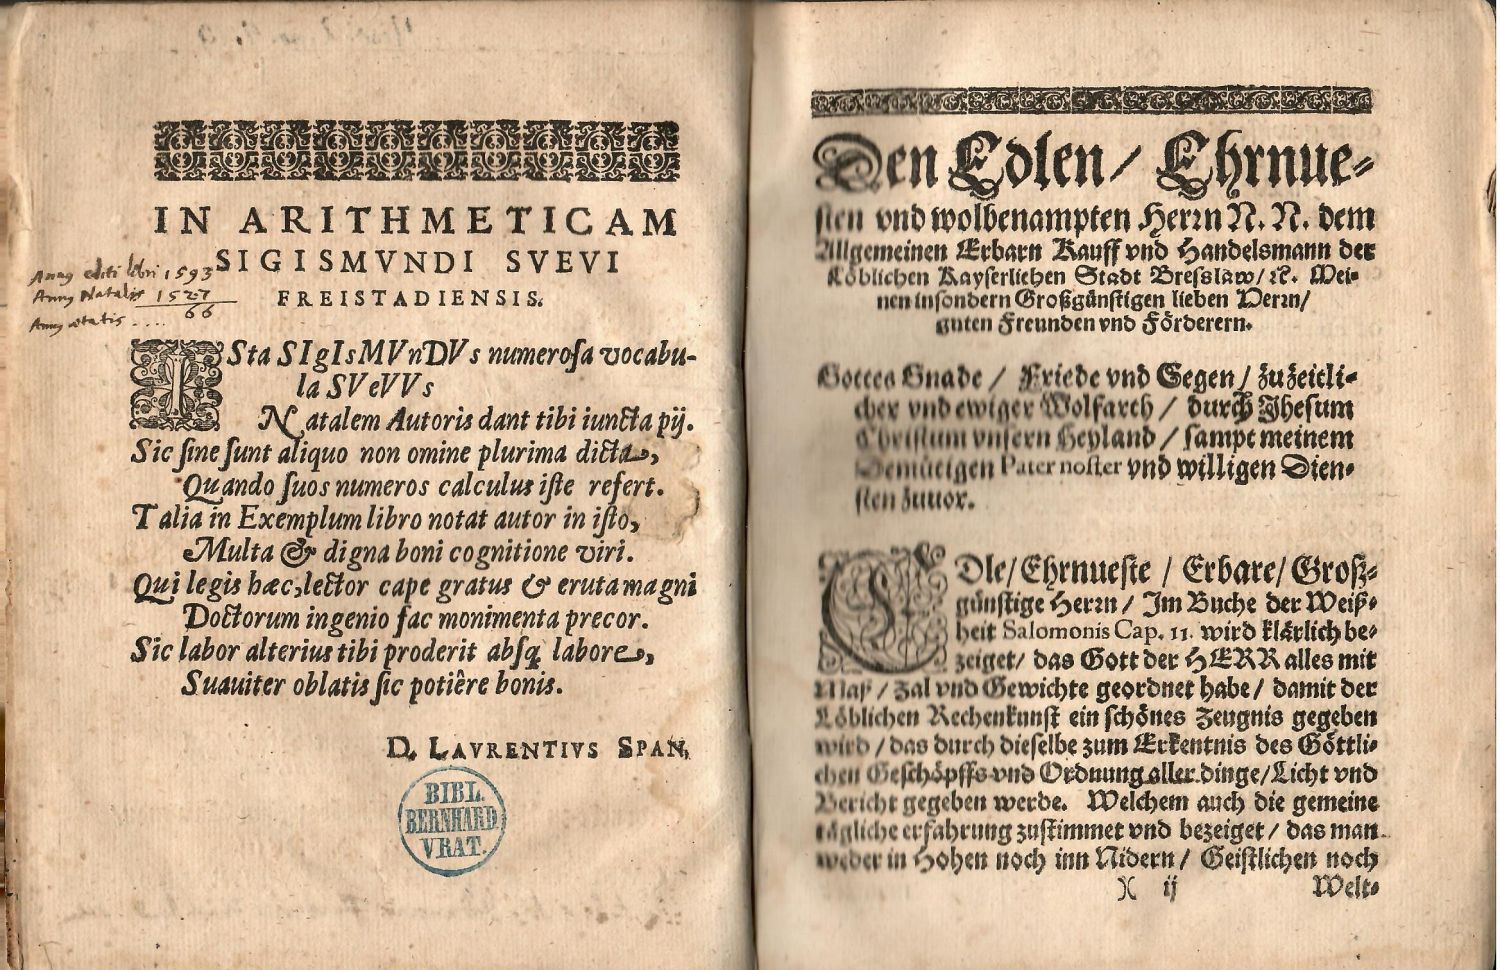 IN ARITHMETICAM
SIGISMVNDI SVEVI
FREISTADIENSIS.
Anno editi libri 1593
Anno Natalis 1527
66
Anno ætatis ....
ISta SIgIsMVnDVs numerosa vocabu-
la SVeVVs
Natalem Autoris dant tibi iuncta pij.
Sic sine sunt aliquo non omine plurima dicta,
Quando suos numeros calculus iste refert.
Talia in Exemplum libro notat autor in isto,
Multa & digna boni cognitione viri.
Qui legis hæc, lector cape gratus & eruta magni
Doctorum ingenio fac monimenta precor.
Sic labor alterius tibi proderit absq́ labore,
Suauiter oblatis sic potiêre bonis.
D. LAVRENTIVS SPAN.
BIBL.
BERNHARD
VRAT.
Den Edlen/ Ehrnue-
sten vnd wolbenampten Herrn N. N. dem
Allgemeinen Erbarn Kauff vnd Handelsmann der
Löblichen Kayserlichen Stadt Bresslaw/ ꝛc. Mei-
nen insondern Großgünstigen lieben Herrn/
guten Freunden vnd Förderern.
Gottes Gnade / Friede vnd Segen/ zu zeitli-
cher vnd ewiger Wolfarth / durch Jhesum
Christum vnsern Heyland / sampt meinem
Demütigen Pater noster vnd willigen Dien-
sten zuuor.
EDle/ Ehrnueste / Erbare/ Groß-
günstige Herrn / Im Buche der Weiß-
heit Salomonis Cap. 11. wird klärlich be-
zeiget/ das Gott der HERR alles mit
Maß / Zal vnd Gewichte geordnet habe/ damit der
Löblichen Rechenkunst ein schönes Zeugnis gegeben
wird / das durch dieselbe zum Erkentnis des Göttli-
chen Geschöpffs vnd Ordnung aller dinge/ Licht vnd
Bericht gegeben werde. Welchem auch die gemeine
tägliche erfahrung zustimmet vnd bezeiget / das man
weder in Hohen noch inn Nidern / Geistlichen noch
)( ij Welt-